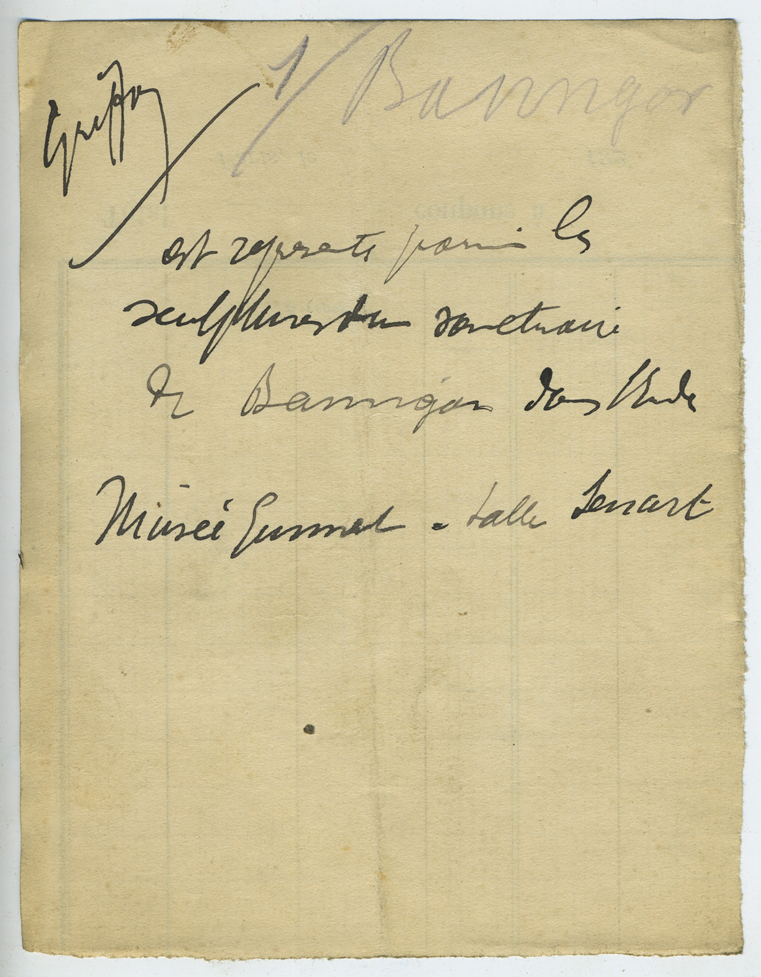 Griffon
1/ Bannigor
est represente parmi les
sculptures du sanctuaire
de Bannigor dans l'Inde
Musée Guimet - salle Senart